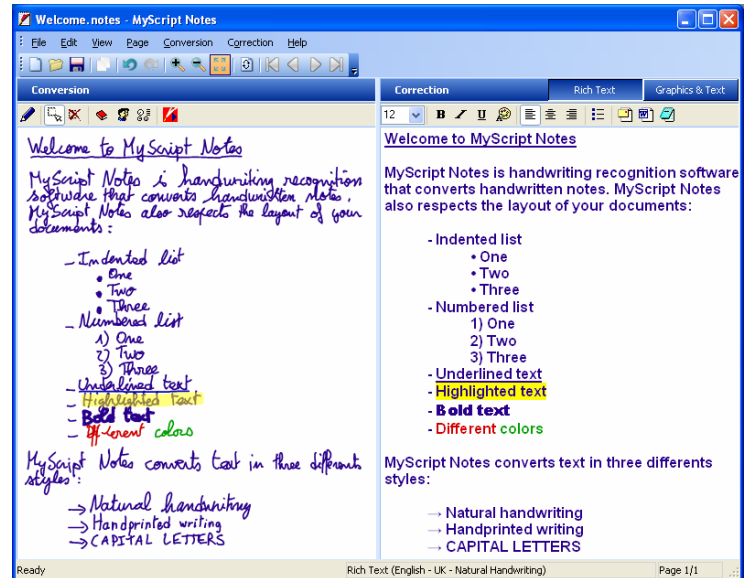 Welcome.notes - MyScript Notes
File Edit View Page Conversion Correction Help
Conversion
Welcome to MyScript Notes
MyScript Notes is handwriting recognition
software that converts handwritten notes.
MyScript Notes also respects the layout of your
documents:
- Indented list
• One
• Two
• Three
- Numbered list
1) One
2) Two
3) Three
- Underlined text
- Highlighted text
- Bold text
- Different colors
MyScript Notes converts text in three differents
styles:
→ Natural handwriting
→ Handprinted writing
→ CAPITAL LETTERS
Correction Rich Text Graphics & Text
12 B I U
Welcome to MyScript Notes
MyScript Notes is handwriting recognition software
that converts handwritten notes. MyScript Notes
also respects the layout of your documents:
- Indented list
• One
• Two
• Three
- Numbered list
1) One
2) Two
3) Three
- Underlined text
- Highlighted text
- Bold text
- Different colors
MyScript Notes converts text in three differents
styles:
→ Natural handwriting
→ Handprinted writing
→ CAPITAL LETTERS
Ready Rich Text (English - UK - Natural Handwriting) Page 1/1